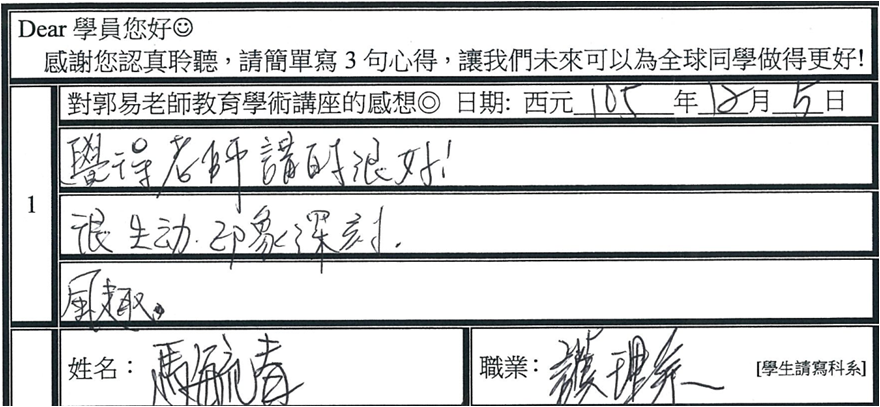 Dear 學員您好☺
感謝您認真聆聽，請簡單寫 3 句心得，讓我們未來可以為全球同學做得更好!
對郭易老師教育學術講座的感想◎ 日期: 西元 105 年 12 月 5 日
1
覺得老師講的很好!
很生动.印象深刻.
風趣。
姓名： 馬毓春
職業： 護理系 [學生請寫科系]